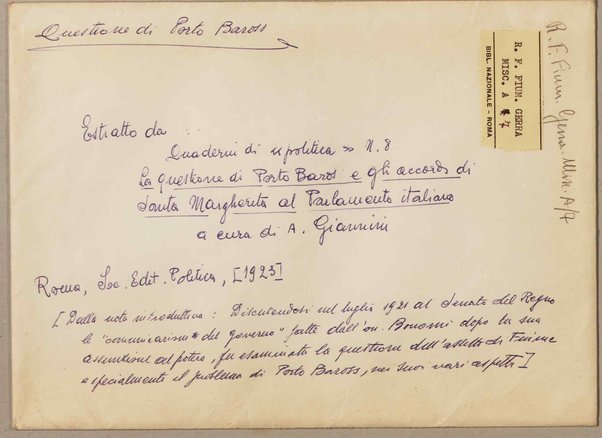 Questione di Porto Baross
R. F. FIUM. GERRA
MISC. A 7
BIBL. NAZIONALE - ROMA
R. F. Fium. Gerra. Misc. A/7
Estratto da
Quaderni di «politica» N. 8
La questione di Porto Baros e gli accordi di
Santa Margherita al Parlamento italiano
a cura di A. Giannini
Roma, Soc. Edit. Politica, [1923]
[Dalla nota introduttiva: Discutendosi nel luglio 1921 al Senato del Regno
le "comunicazioni del governo" fatte dall'on. Bonomi dopo la sua
assunzione al potere, fu esaminata la questione dell'assetto di Fiume
e specialmente il problema di Porto Baross, nei suoi vari aspetti]